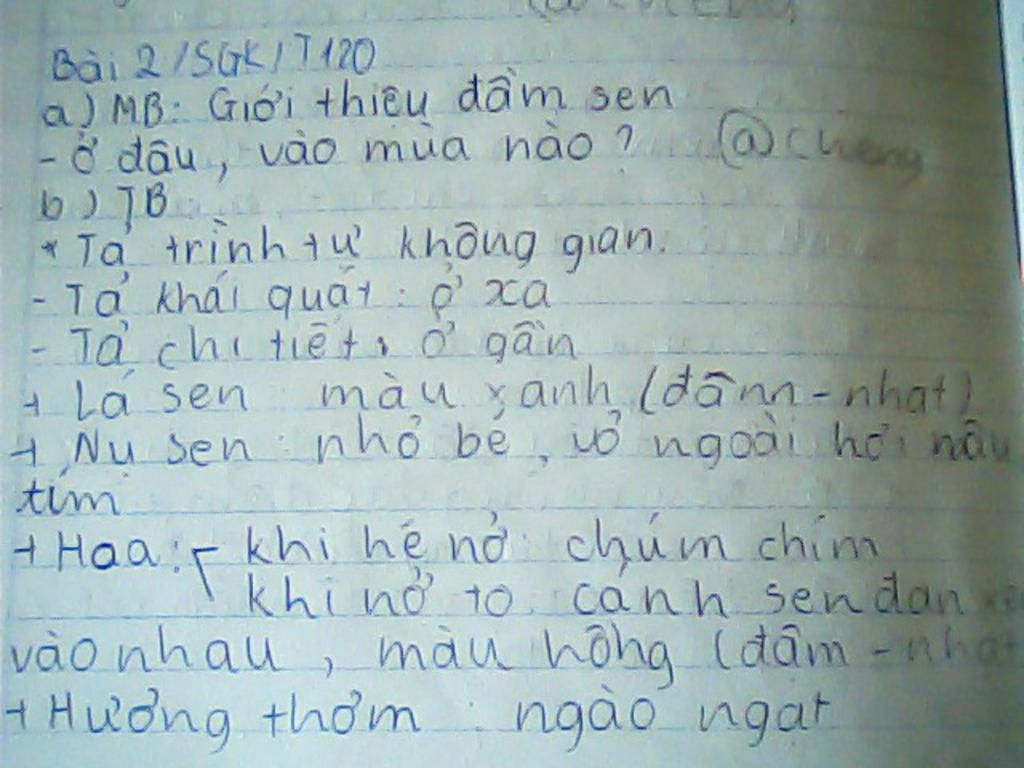 Bài 2 / SGK / T120
a) MB: Giới thiệu đầm sen
- Ở đâu, vào mùa nào? @Cheng
b) TB
* Tả trình tự không gian.
- Tả khái quát: ở xa
- Tả chi tiết: ở gần
+ Lá sen màu xanh (đậm - nhạt)
+ Nụ sen: nhỏ bé, vỏ ngoài hơi nâu
tím
+ Hoa: khi hé nở: chúm chím
khi nở to cánh sen đan
vào nhau, màu hồng (đậm - nhạt
+ Hương thơm: ngào ngạt